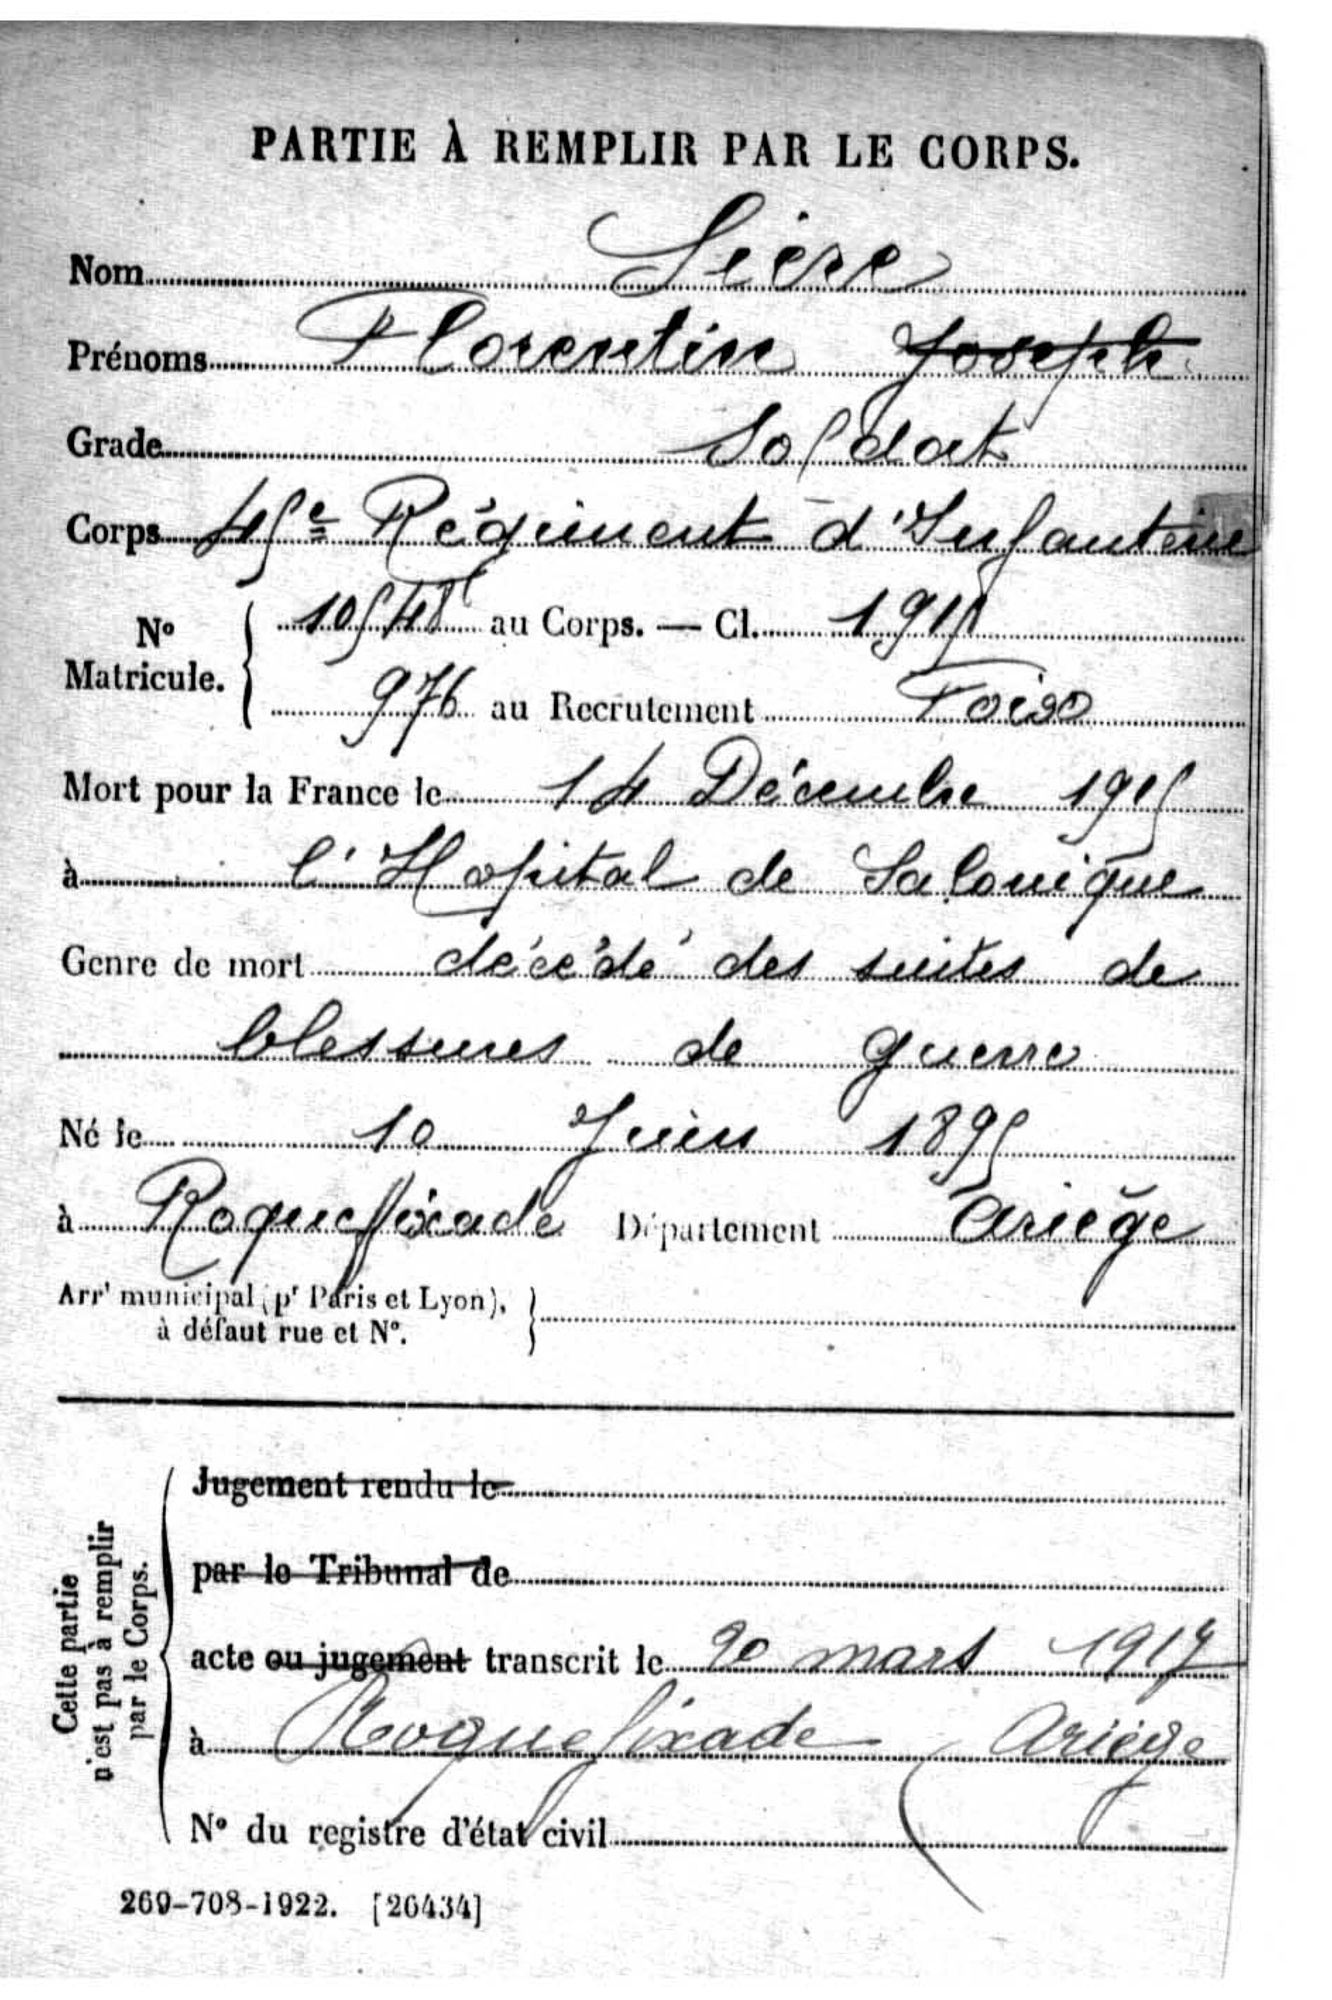 PARTIE À REMPLIR PAR LE CORPS.
Nom Sicre
Prénoms Florentin Joseph
Grade Soldat
Corps 45e Régiment d'Infanterie
No Matricule. 10548 au Corps. — Cl. 1915
976 au Recrutement Foix
Mort pour la France le 14 Décembre 1915
à l'Hopital de Salonique
Genre de mort décédé des suites de
blessures de guerre
Né le 10 Juin 1895
à Roquefixade Département Ariège
Arrt municipal (pr Paris et Lyon),
à défaut rue et No.
Cette partie
n'est pas à remplir
par le Corps.
Jugement rendu le
par le Tribunal de
acte ou jugement transcrit le 20 mars 1917
à Roquefixade (Ariège
No du registre d'état civil
269-708-1922. [26434]